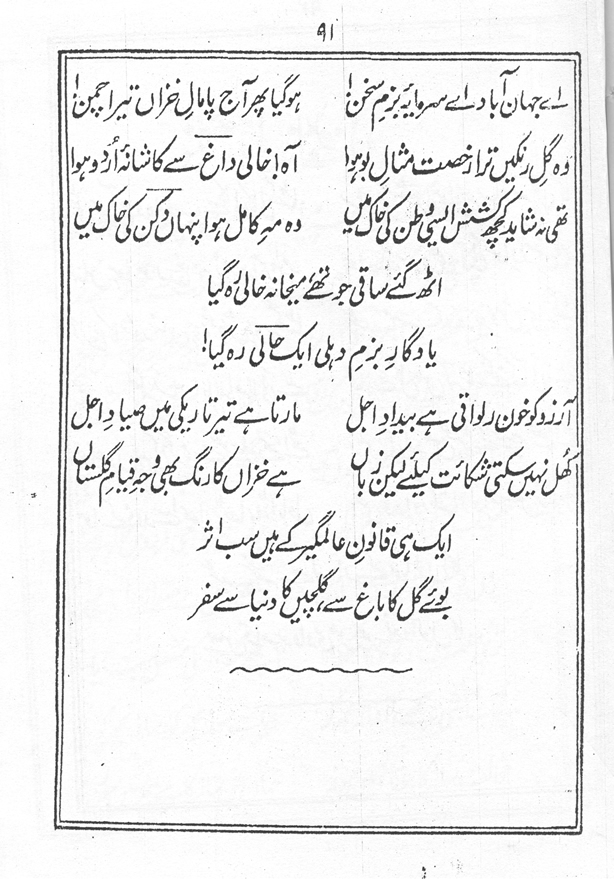 ۹۱
اے جہان آباد اے سرمایۂ بزمِ سخن! ہو گیا پھر آج پامالِ خزاں تیرا چمن!
وہ گلِ رنگیں ترا رخصت مثالِ بو ہوا آہ! خالی داغ سے کاشانۂ اُردو ہوا
تھی نہ شاید کچھ کشش ایسی وطن کی خاک میں وہ مہِ کامل ہوا پنہاں دکن کی خاک میں
اٹھ گئے ساقی جو تھے میخانہ خالی رہ گیا
یادگارِ بزمِ دہلی ایک حالی رہ گیا!
آرزو کو خون رلواتی ہے بیدادِ اجل مارتا ہے تیر تاریکی میں صیادِ اجل
کھُل نہیں سکتی شکائت کیلئے لیکن زباں ہے خزاں کا رنگ بھی وجہِ قیامِ گلستاں
ایک ہی قانونِ عالمگیر کے ہیں سب اثر
بوئے گل کا باغ سے، گلچیں کا دنیا سے سفر